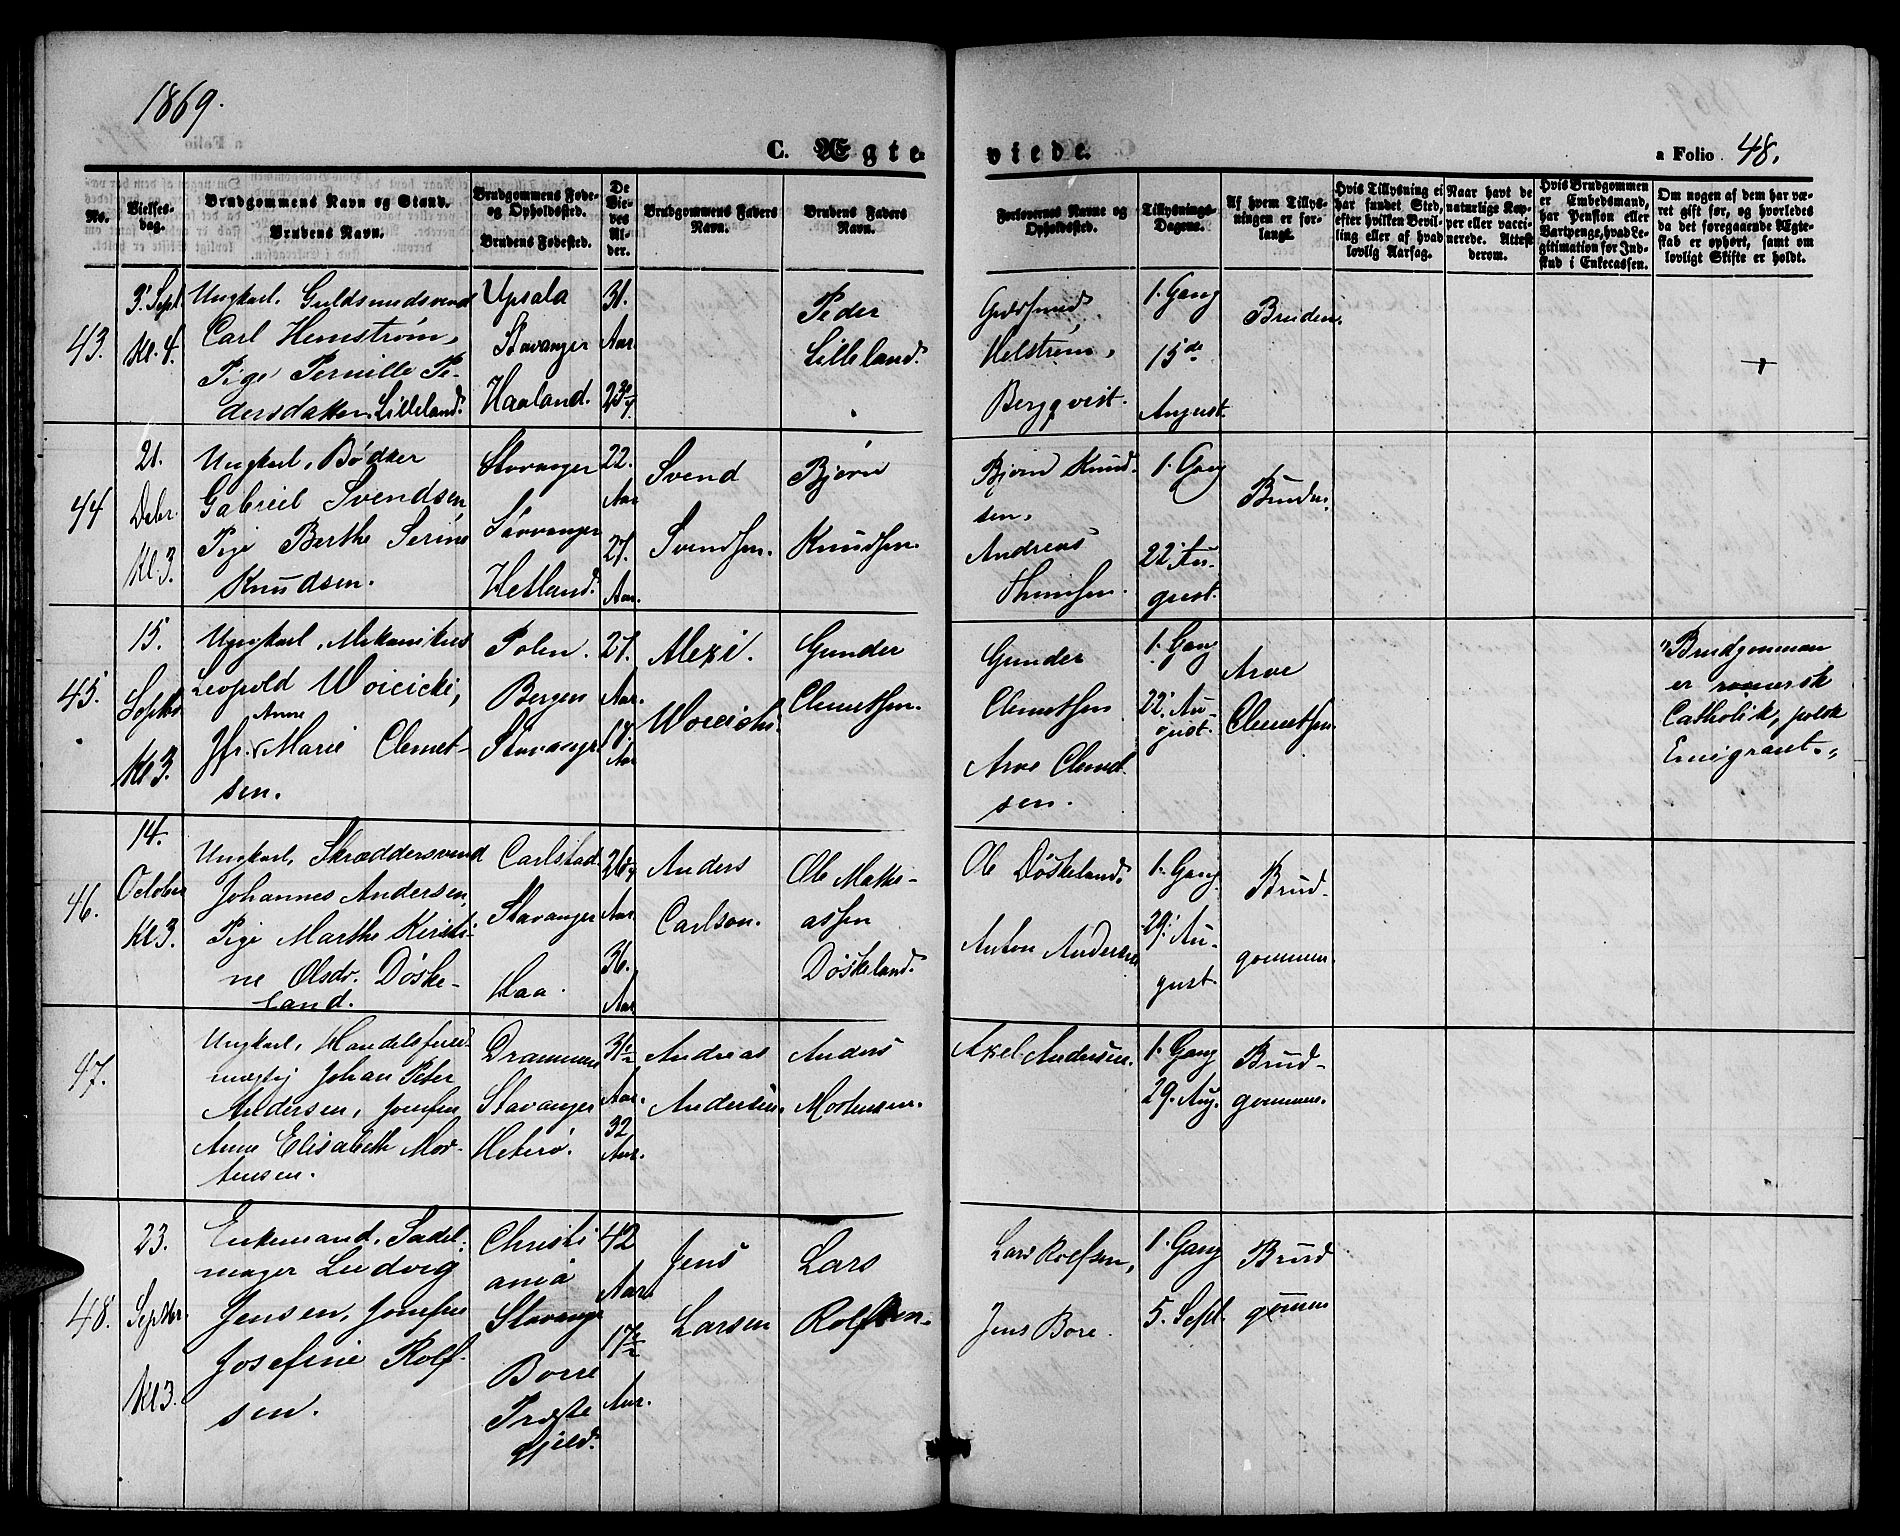 1869.
C. Ægte-
viede.
a Folio 48.
No.
Vielses-
dag.
Brudgommens Navn og Stand.
Brudens Navn.
Brudgommens Føde-
og Opholdssted.
Brudens Fødested.
De
Vie-
des
Al-
der.
Brudgommens Faders
Navn.
Brudens Faders
Navn.
Forlovernes Navne og
Opholdssted.
Tillysnings-
Dagene.
Af hvem Tillys-
ningen er for-
langt.
Hvis Tillysning ei
har fundet Sted,
efter hvilken Bevil-
ling eller af hvad
lovlig Aarsag.
Naar havt de
naturlige Kop-
per eller vacci-
nerede. Attest
derom.
Hvis Brudgommen
er Embedsmand,
har Pension eller
Vartpenge, hvad Le-
gitimation for Ind-
skud i Enkecassen.
Om nogen af dem har væ-
ret gift før, og hvorledes
da det foregaaende Ægte-
skab er ophørt, samt om
lovligt Skifte er holdt.
43.
3. Sept
Kl. 4.
Ungkarl. Guldsmedsvend
Carl Hemstrøm,
Pige Pernille Pe-
dersdatter Lilleland.
Upsala
Stavanger
Haaland.
31.
Aar.
23
Peder
Lilleland.
Guldsmed
Helstrøm,
Bergqvist.
1. Gang
15de
August.
Bruden.
44
21.
Debr.
Kl. 3.
Ungkarl, Bødker
Gabriel Svendsen,
Pige Berthe Serine
Knudsen.
Stavanger
Stavanger
Hetland.
22.
Aar
27.
Aar.
Svend
Svendsen.
Bjørn
Knudsen.
Bjørn Knud-
sen,
Andreas
1. Gang
22. Au-
gust.
Bruden.
45.
15.
Septbr
Kl 3.
Ungkarl, Mekanikus
Leopold Woicicki,
Anne
Jfr. Marie Clemet-
sen.
Polen.
Bergen
Stavanger
27.
Aar.
19
Aar
Alexi.
Woicicki.
Gunder
Clemetsen.
Gunder
Clemetsen
Arve Clemet
sen.
1. Gang
22. Au-
gust.
Arve
Clemetsen.
"Brudgommen
er romersk
Catholik, polsk
Emigrant."
46.
14.
October
Kl 3.
Ungkarl, Skræddersvend
Johannes Andersen,
Pige Marthe Kirsti-
ne Olsdr. Døske-
land.
Carlstad
Stavanger
Haa.
26
Aar.
36.
Aar
Anders
Carlson.
Ole Mathi-
assen
Døskeland.
Ole Døskeland.
Anton Andersen
1. Gang
29. Au-
gust.
Brud-
gommen.
47.
Ungkarl, Handelsfuld-
mægtig Johan Peter
Andersen, Jomfru
Anne Elisabeth Mor-
tensen.
Drammen
Stavanger
Heterø.
31½
Aar.
32
Aar.
Andreas
Andersen.
Anders
Mortensen.
Axel Andersen.
1. Gang
29. Aug.
Brud-
gommen.
48.
23.
Septbr.
Kl 3.
Enkemand, Sadel-
mager Ludvig
Jensen, Jomfru
Josefine Rolf-
sen.
Christi
ania
Stavanger
Borre
Præste
gjeld.
42
Aar
17½
Aar.
Jens
Larsen
Lars
Rolfsen.
Lars Rolfsen,
Jens Bore.
1. Gang
5. Sept.
Brud
gommen